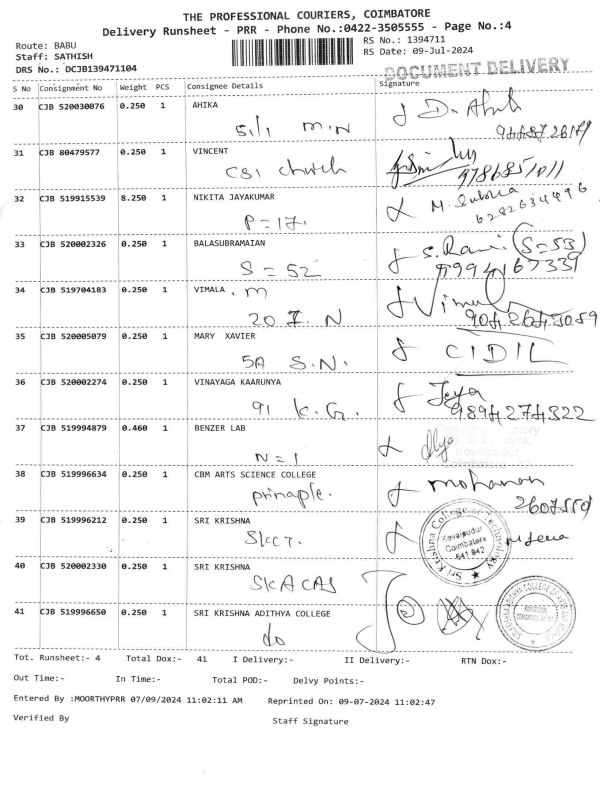 THE PROFESSIONAL COURIERS, COIMBATORE
Delivery Runsheet - PRR - Phone No.:0422-3505555 - Page No.:4
Route: BABU RS No.: 1394711
Staff: SATHISH RS Date: 09-Jul-2024
DRS No.: DCJB139471104 DOCUMENT DELIVERY
S No Consignment No Weight PCS Consignee Details Signature
30 CJB 520030076 0.250 1 AHIKA
31 CJB 80479577 0.250 1 VINCENT
CSI church 9786851011
32 CJB 519915539 8.250 1 NIKITA JAYAKUMAR
P=17. 6282634496
33 CJB 520002326 0.250 1 BALASUBRAMAIAN S. Rani (S=53)
S = 52
34 CJB 519704183 0.250 1 VIMALA . m Vimal
20 7. N
35 CJB 520005079 0.250 1 MARY XAVIER CIDIL
5A S.N.
36 CJB 520002274 0.250 1 VINAYAGA KAARUNYA Jeya
91 K.G. 9894274322
37 CJB 519994879 0.460 1 BENZER LAB
N=1
38 CJB 519996634 0.250 1 CBM ARTS SCIENCE COLLEGE mohanan
prinaple. 2607559
39 CJB 519996212 0.250 1 SRI KRISHNA
Skct. Sri Krishna College of Technology Kovaipudur Coimbatore 641 042
40 CJB 520002330 0.250 1 SRI KRISHNA
SKACAS
41 CJB 519996650 0.250 1 SRI KRISHNA ADITHYA COLLEGE
do
Tot. Runsheet:- 4 Total Dox:- 41 I Delivery:- II Delivery:- RTN Dox:-
Out Time:- In Time:- Total POD:- Delvy Points:-
Entered By :MOORTHYPRR 07/09/2024 11:02:11 AM Reprinted On: 09-07-2024 11:02:47
Verified By Staff Signature